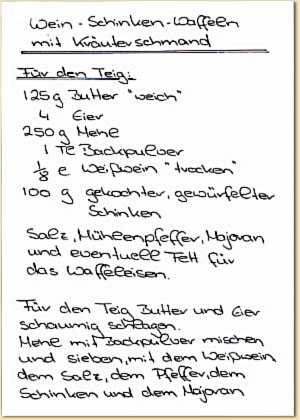 Wein-Schinken-Waffeln
mit Kräuterschmand
Für den Teig:
125 g Butter "weich"
4 Eier
250 g Mehl
1 TL Backpulver
1/8 l Weißwein "trocken"
100 g gekochter, gewürfelter
Schinken
Salz, Mühlenpfeffer, Majoran
und eventuell Fett für
das Waffeleisen.
Für den Teig Butter und Eier
schaumig schlagen.
Mehl mit Backpulver mischen
und sieben, mit dem Weißwein
dem Salz, dem Pfeffer, dem
Schinken und dem Majoran